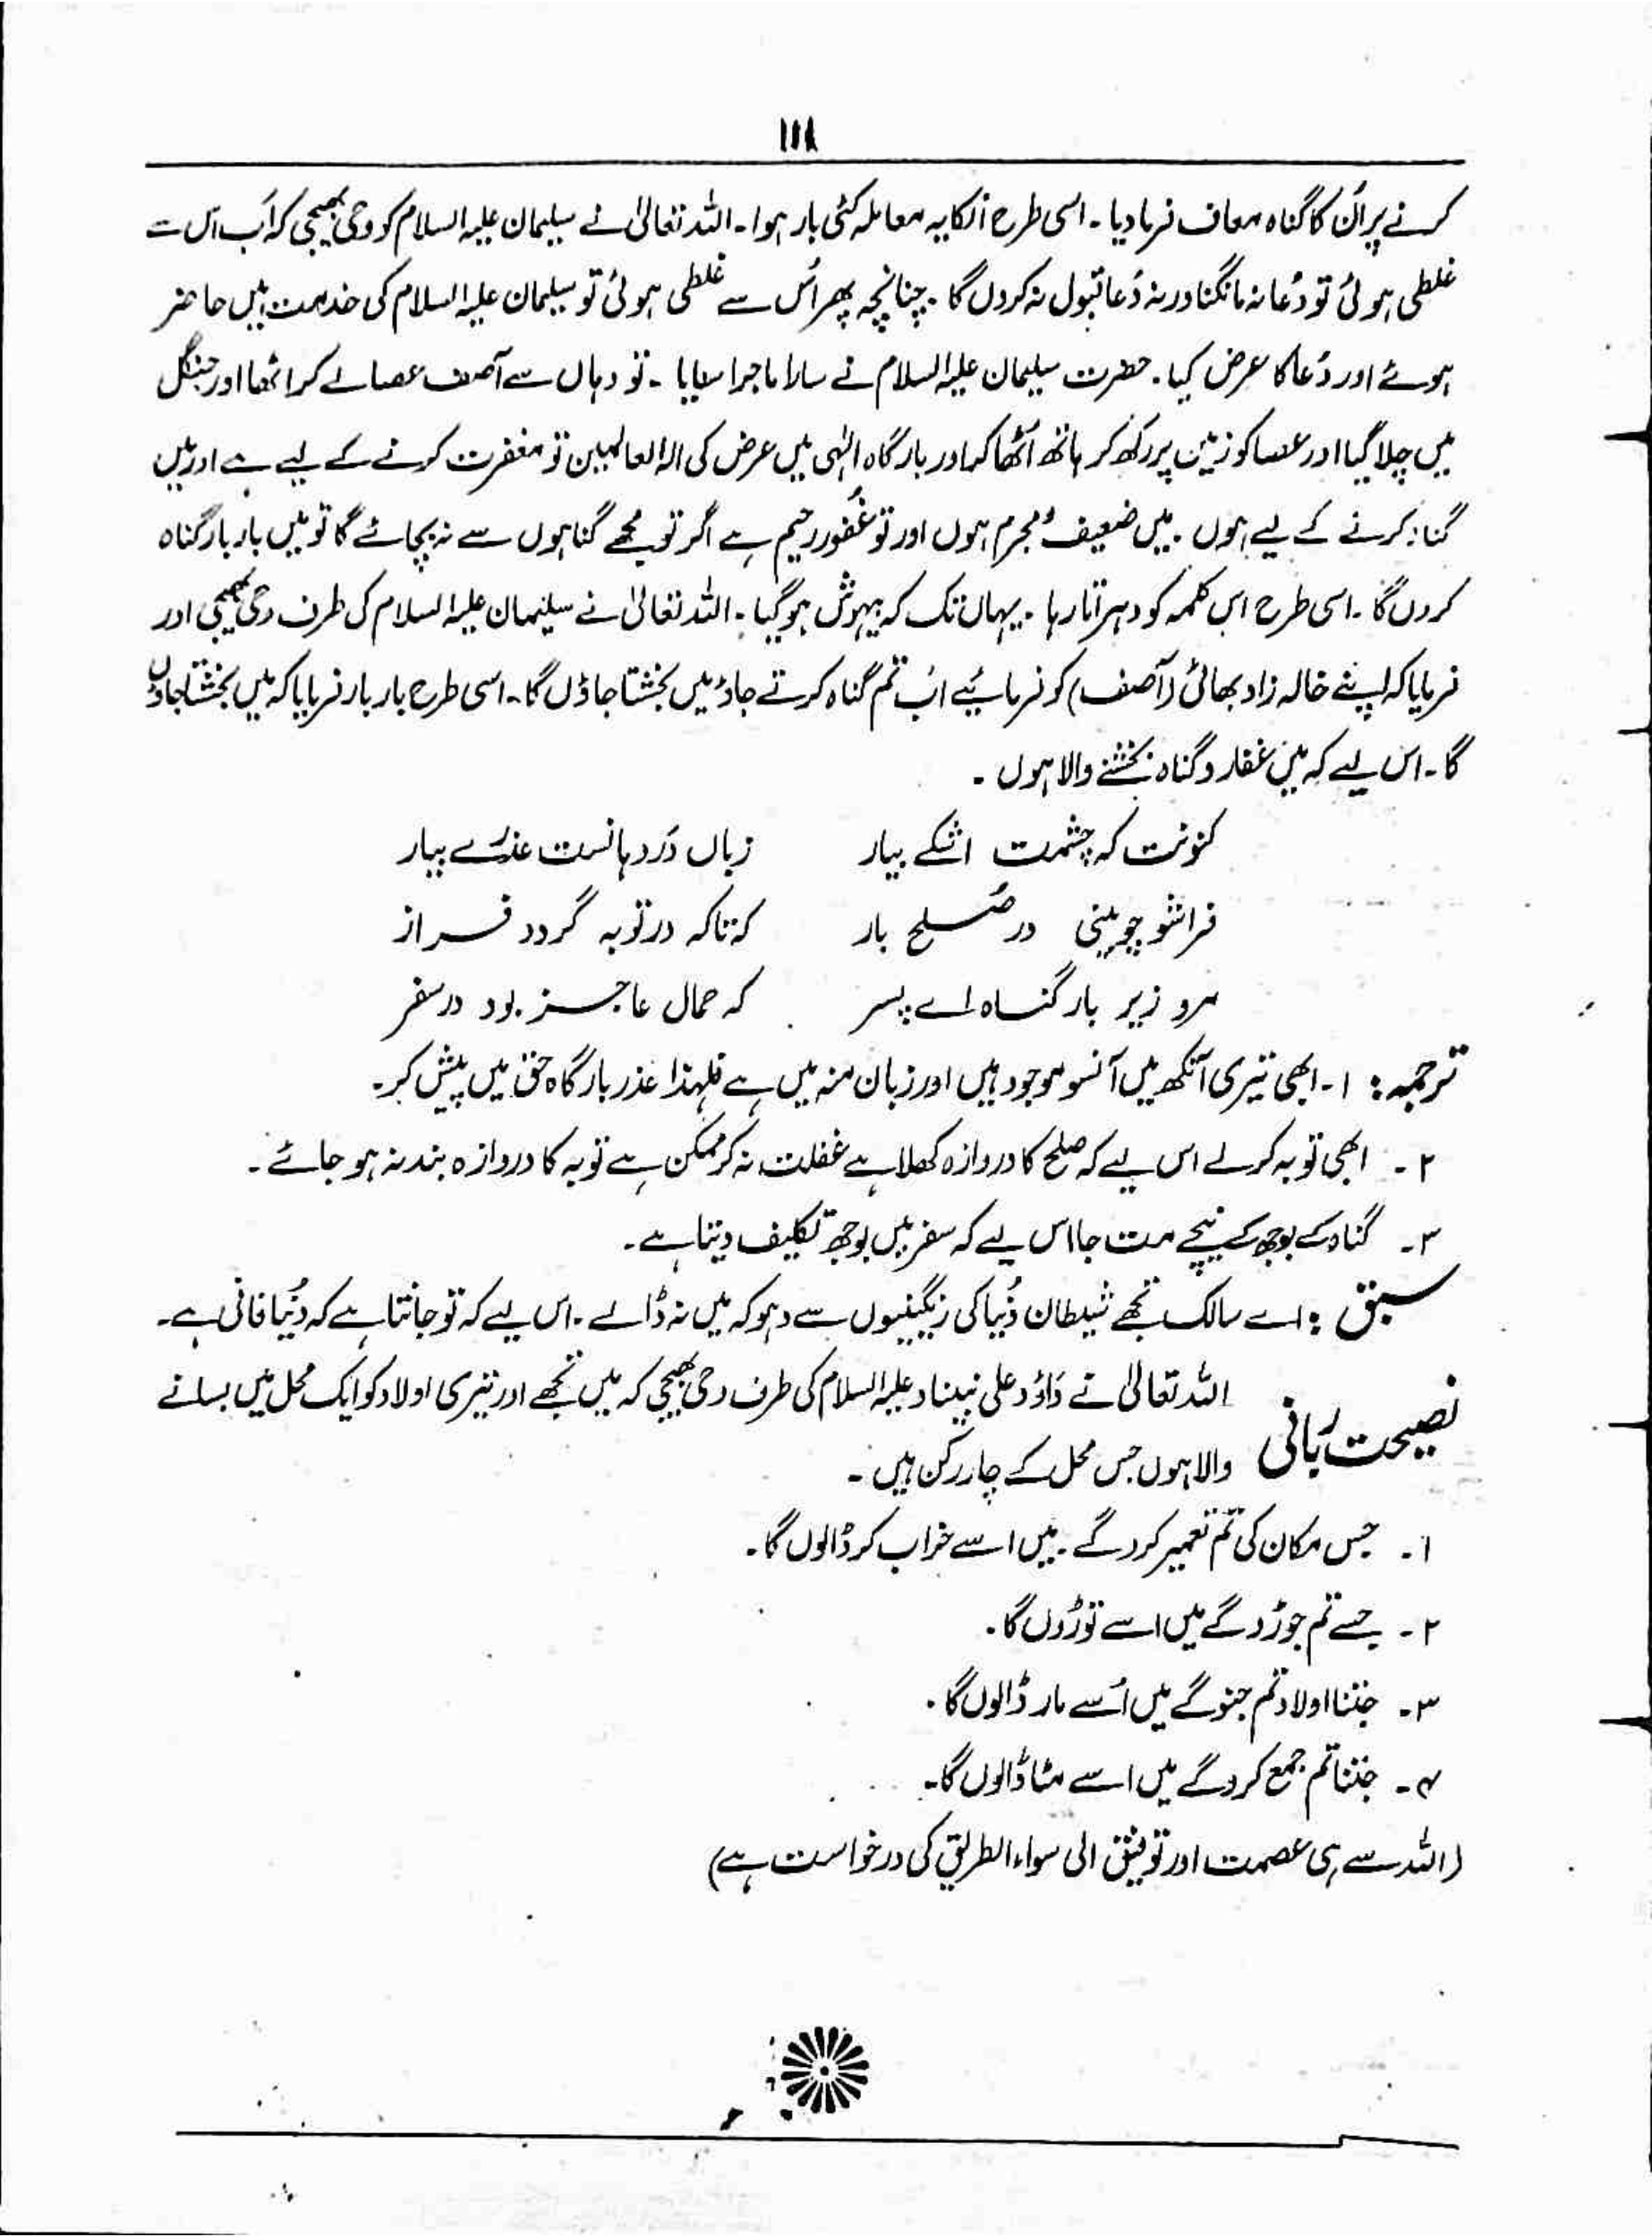 ۱۱۸
کرنے پر اُن کا گناہ معاف فرما دیا ۔ اسی طرح اُن کا یہ معاملہ کئی بار ہوا ۔ اللہ تعالیٰ نے سلیمان علیہ السلام کو وحی بھیجی کہ اَب اس سے
غلطی ہوئی تو دُعا نہ مانگنا ورنہ دُعا قبول نہ کروں گا ۔ چنانچہ پھر اُس سے غلطی ہوئی تو سلیمان علیہ السلام کی خدمت میں حاضر
ہوئے اور دُعا کا عرض کیا ۔ حضرت سلیمان علیہ السلام نے سارا ماجرا سنایا ۔ تو وہاں سے آصف عصا لے کر اٹھا اور جنگل
میں چلا گیا اور عصا کو زمین پر رکھ کر ہاتھ اُٹھا کر اور بارگاہ الٰہی میں عرض کی الہ العالمین تو مغفرت کرنے کے لیے ہے اور میں
گناہ کرنے کے لیے ہوں ۔ میں ضعیف مُجرم ہوں اور تو غفور رحیم ہے اگر تو مجھے گناہوں سے نہ بچائے گا تو میں بار بار گناہ
کروں گا ۔ اسی طرح اس کلمہ کو دہراتا رہا ۔ یہاں تک کہ بیہوش ہو گیا ۔ اللہ تعالیٰ نے سلیمان علیہ السلام کی طرف وحی بھیجی اور
فرمایا کہ اپنے خالہ زاد بھائی (آصف) کو فرمائیے اب تم گناہ کرتے جاؤ میں بخشتا جاؤں گا ۔ اسی طرح بار بار فرمایا کہ میں بخشتا جاؤں
گا ۔ اس لیے کہ میں غفار و گناہ بخشنے والا ہوں ۔
کنونت کہ چشمت اشکے ببار زباں دَر دہانست عذرے بیار
فراشو چو بینی در صُلح باز کہ ناگہ در توبہ گردد فراز
مرو زیر بار گناہ اے پسر کہ حمال عاجز بود در سفر
ترجمہ : ۱ ۔ ابھی تیری آنکھ میں آنسو موجود ہیں اور زبان منہ میں ہے فلہذا عذر بارگاہ حق میں پیش کر ۔
۲ ۔ ابھی توبہ کر لے اس لیے کہ صلح کا دروازہ کھلا ہے غفلت نہ کر ممکن ہے توبہ کا دروازہ بند نہ ہو جائے ۔
۳ ۔ گناہ کے بوجھ کے نیچے مت جا اس لیے کہ سفر میں بوجھ تکلیف دیتا ہے ۔
سبق : اے سالک تجھے شیطان دُنیا کی رنگینیوں سے دہوکہ میں نہ ڈالے ۔ اس لیے کہ تو جانتا ہے کہ دُنیا فانی ہے ۔
نصیحت ربانی اللہ تعالیٰ نے داؤد علی نبینا و علیہ السلام کی طرف وحی بھیجی کہ میں تجھے اور تیری اولاد کو ایک محل میں بسانے
والا ہوں جس محل کے چار رکن ہیں ۔
۱ ۔ جس مکان کی تم تعمیر کرو گے ۔ میں اسے خراب کر ڈالوں گا ۔
۲ ۔ جسے تم جوڑو گے میں اسے توڑوں گا ۔
۳ ۔ جتنا اولاد تم جنو گے میں اُسے مار ڈالوں گا ۔
۴ ۔ جتنا تم جمع کرو گے میں اسے مٹا ڈالوں گا ۔
(اللہ سے ہی عصمت اور توفیق الی سواء الطریق کی درخواست ہے)